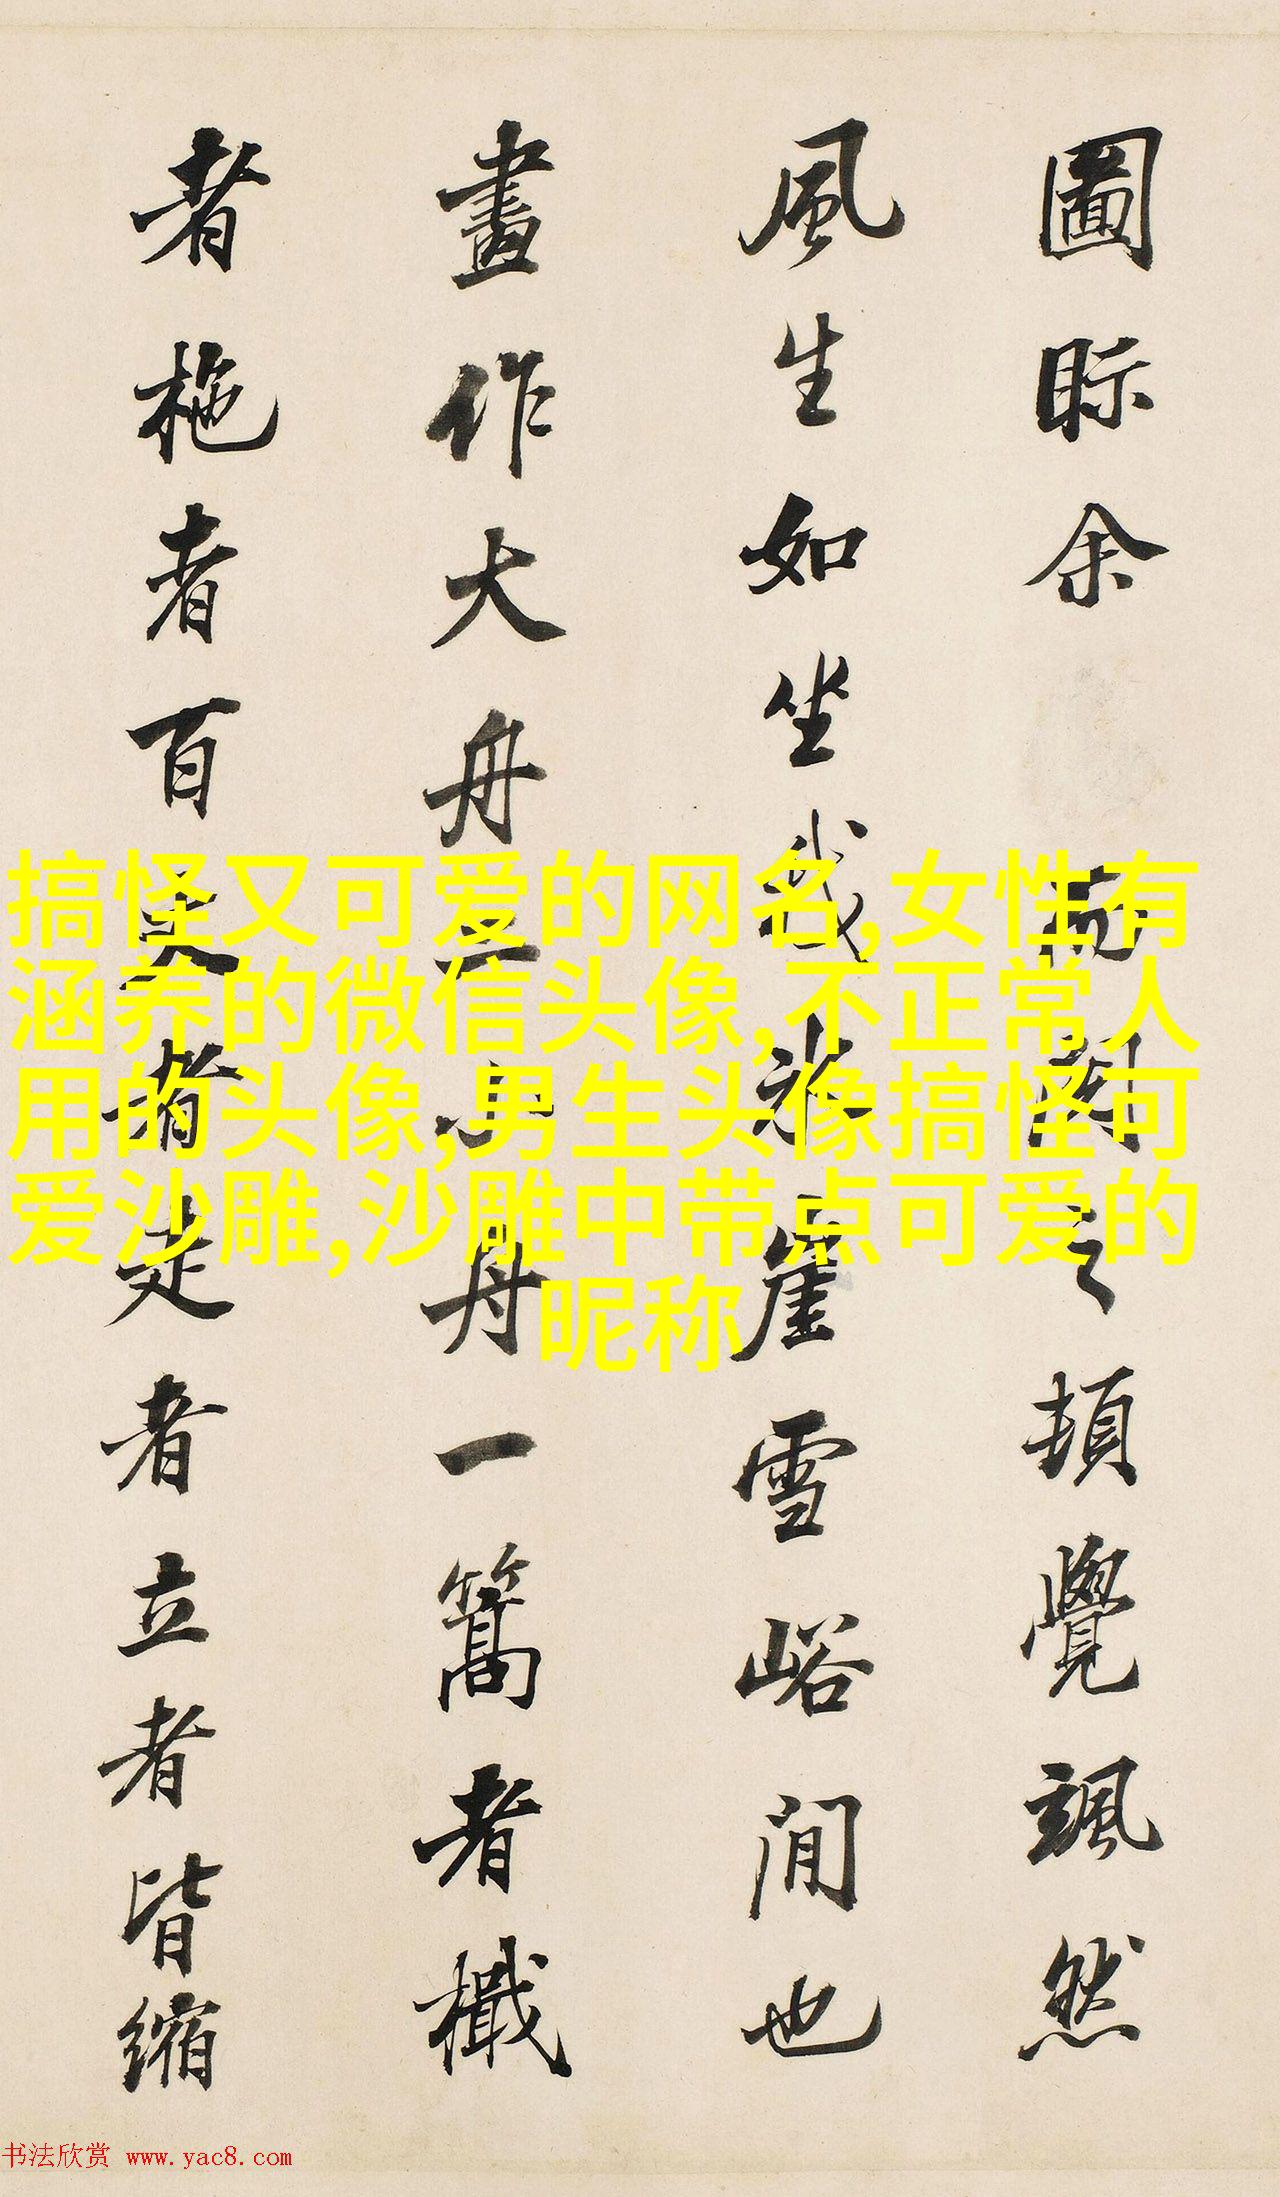 圖眎余閱之頓覺颯然
風生如坐我冰崖雪峪間也
畫作大舟二小舟一篙者檝
者柂者百丈者走者立者皆縮
搞怪又可爱的网名,女性有
涵养的微信头像,不正常人
用的头像,男生头像搞怪可
爱沙雕,沙雕中带点可爱的
昵称
书法欣赏 www.yac8.com